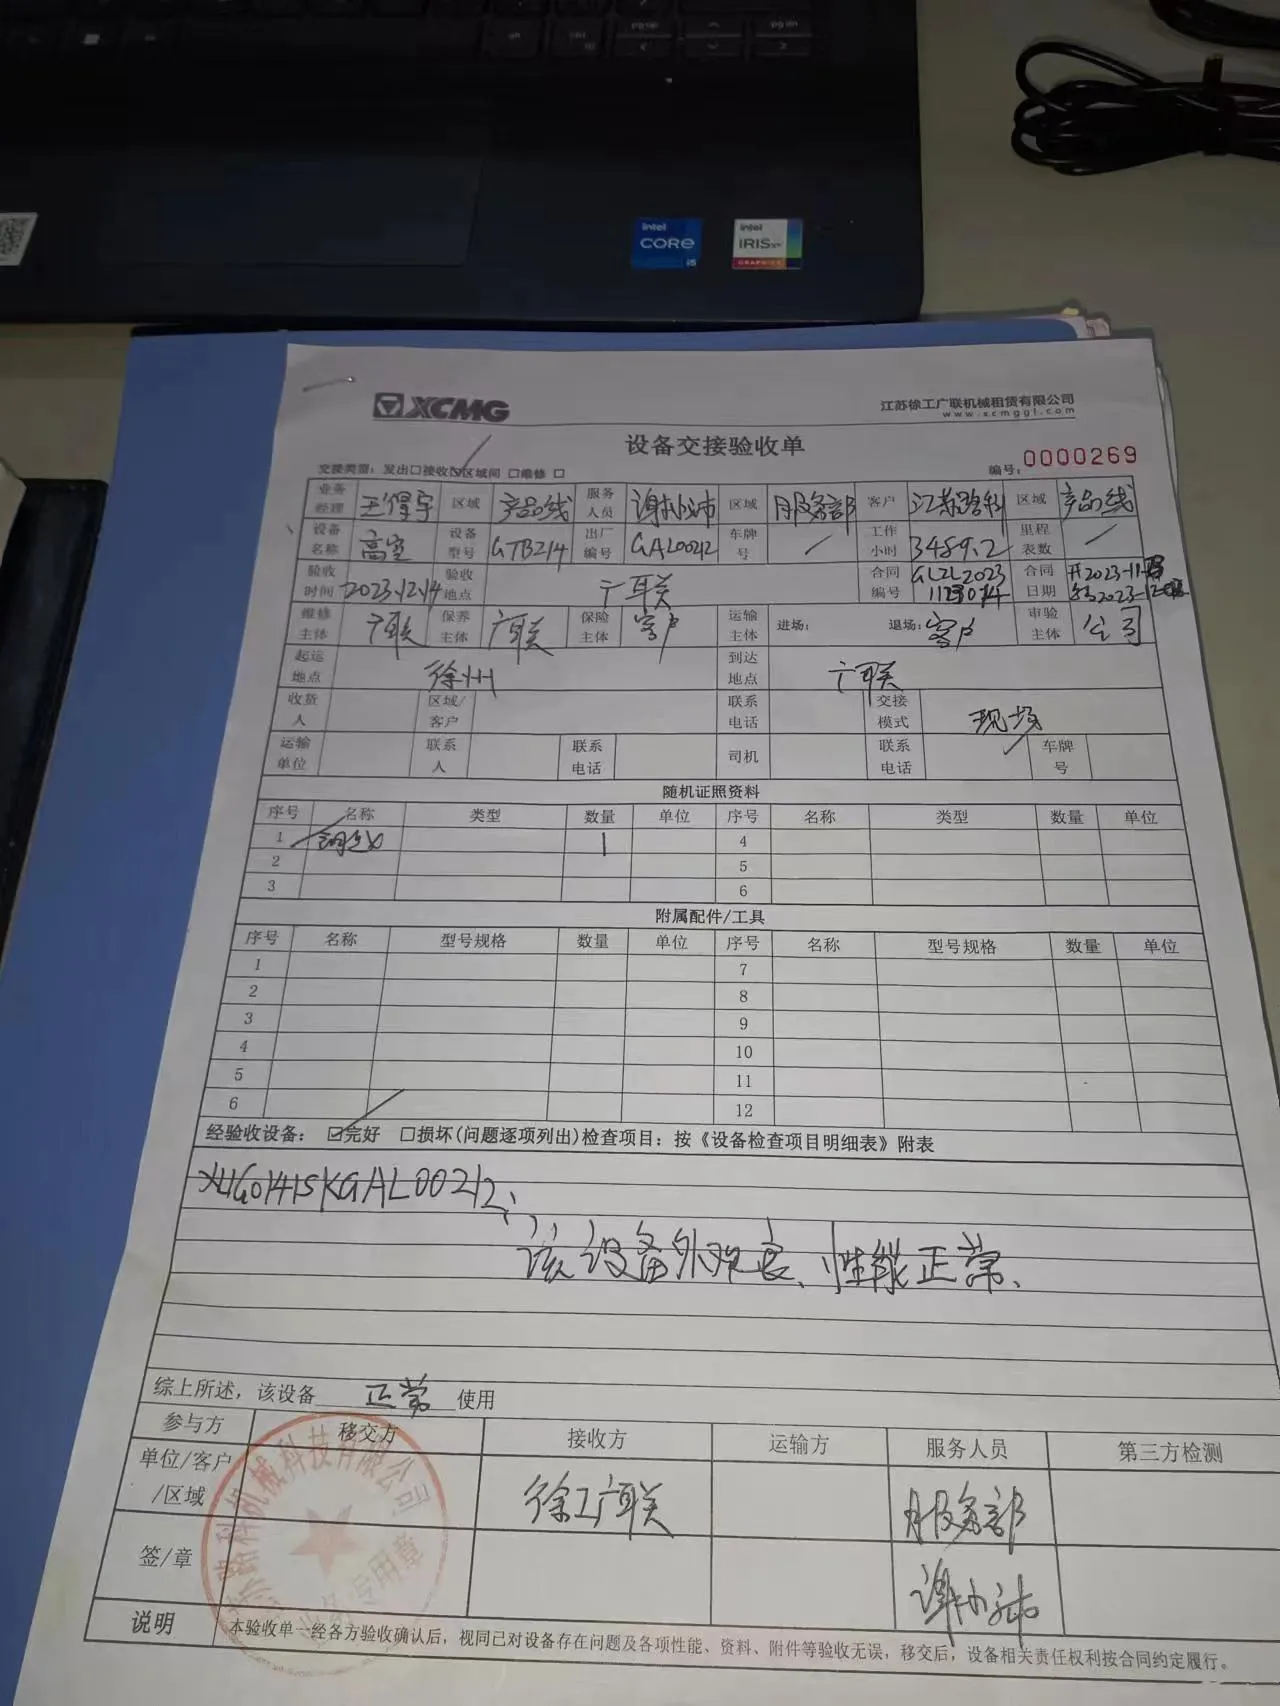 intel
CORE
i5
intel
IRIS Xe
GRAPHICS
XCMG
江苏徐工广联机械租赁有限公司
www.xcmggl.com
设备交接验收单
交接类型：发出□接收☑区域间 □维修 □
编号：0000269
业务经理 王得宇 区域 产品线 服务人员 区域 服务部 客户 江苏路科 区域 产品线
设备名称 高空 设备型号 GTBZ14 出厂编号 GAL00212 车牌号 / 工作小时 3489.2 里程表数 /
验收时间 2023.12.14 验收地点 广联 合同编号 GLZL2023 合同日期
维修主体 广联 保养主体 广联 保险主体 客户 运输主体 进场： 退场：客户 审验主体 公司
起运地点 徐州 到达地点 广联
收货人 区域/客户 联系电话 交接模式 现场
运输单位 联系人 联系电话 司机 联系电话 车牌号
随机证照资料
序号 名称 类型 数量 单位 序号 名称 类型 数量 单位
1 1 4
2 5
3 6
附属配件/工具
序号 名称 型号规格 数量 单位 序号 名称 型号规格 数量 单位
1 7
2 8
3 9
4 10
5 11
6 12
经验收设备： ☑完好 □损坏(问题逐项列出)检查项目：按《设备检查项目明细表》附表
XUG0141SKGAL00212；
该设备外观良、性能正常、
综上所述，该设备 正常 使用
参与方 移交方 接收方 运输方 服务人员 第三方检测
单位/客户/区域 徐工广联 服务部
签/章
路科机械科技有限公司
业务专用章
说明 本验收单一经各方验收确认后，视同已对设备存在问题及各项性能、资料、附件等验收无误，移交后，设备相关责任权利按合同约定履行。